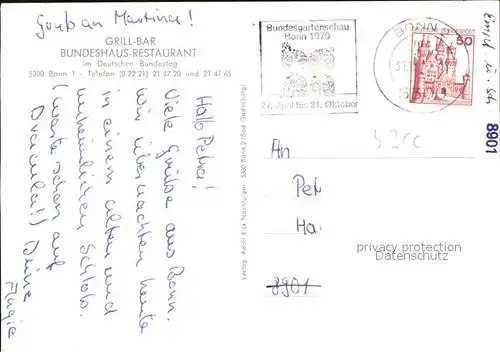 Gruß an Martina!
GRILL-BAR
BUNDESHAUS-RESTAURANT
im Deutschen Bundestag
5300 Bonn 1 - Telefon (0 22 21) 21 47 20 und 21 47 65
Hallo Petra!
Viele Grüße aus Bonn.
Wir übernachten heute
in einem alten und
unheimlichen Schloß.
(warte schon auf
Dracula!) Deine
Verlag: Adolf Rick Nachfolger · 5300 Bonn 2 (Bad Godesberg)
Bundesgartenschau
Bonn 1979
27. April bis 21. Oktober
BONN
50
8901
An
Pet
Ha
8901
privacy protection
Datenschutz